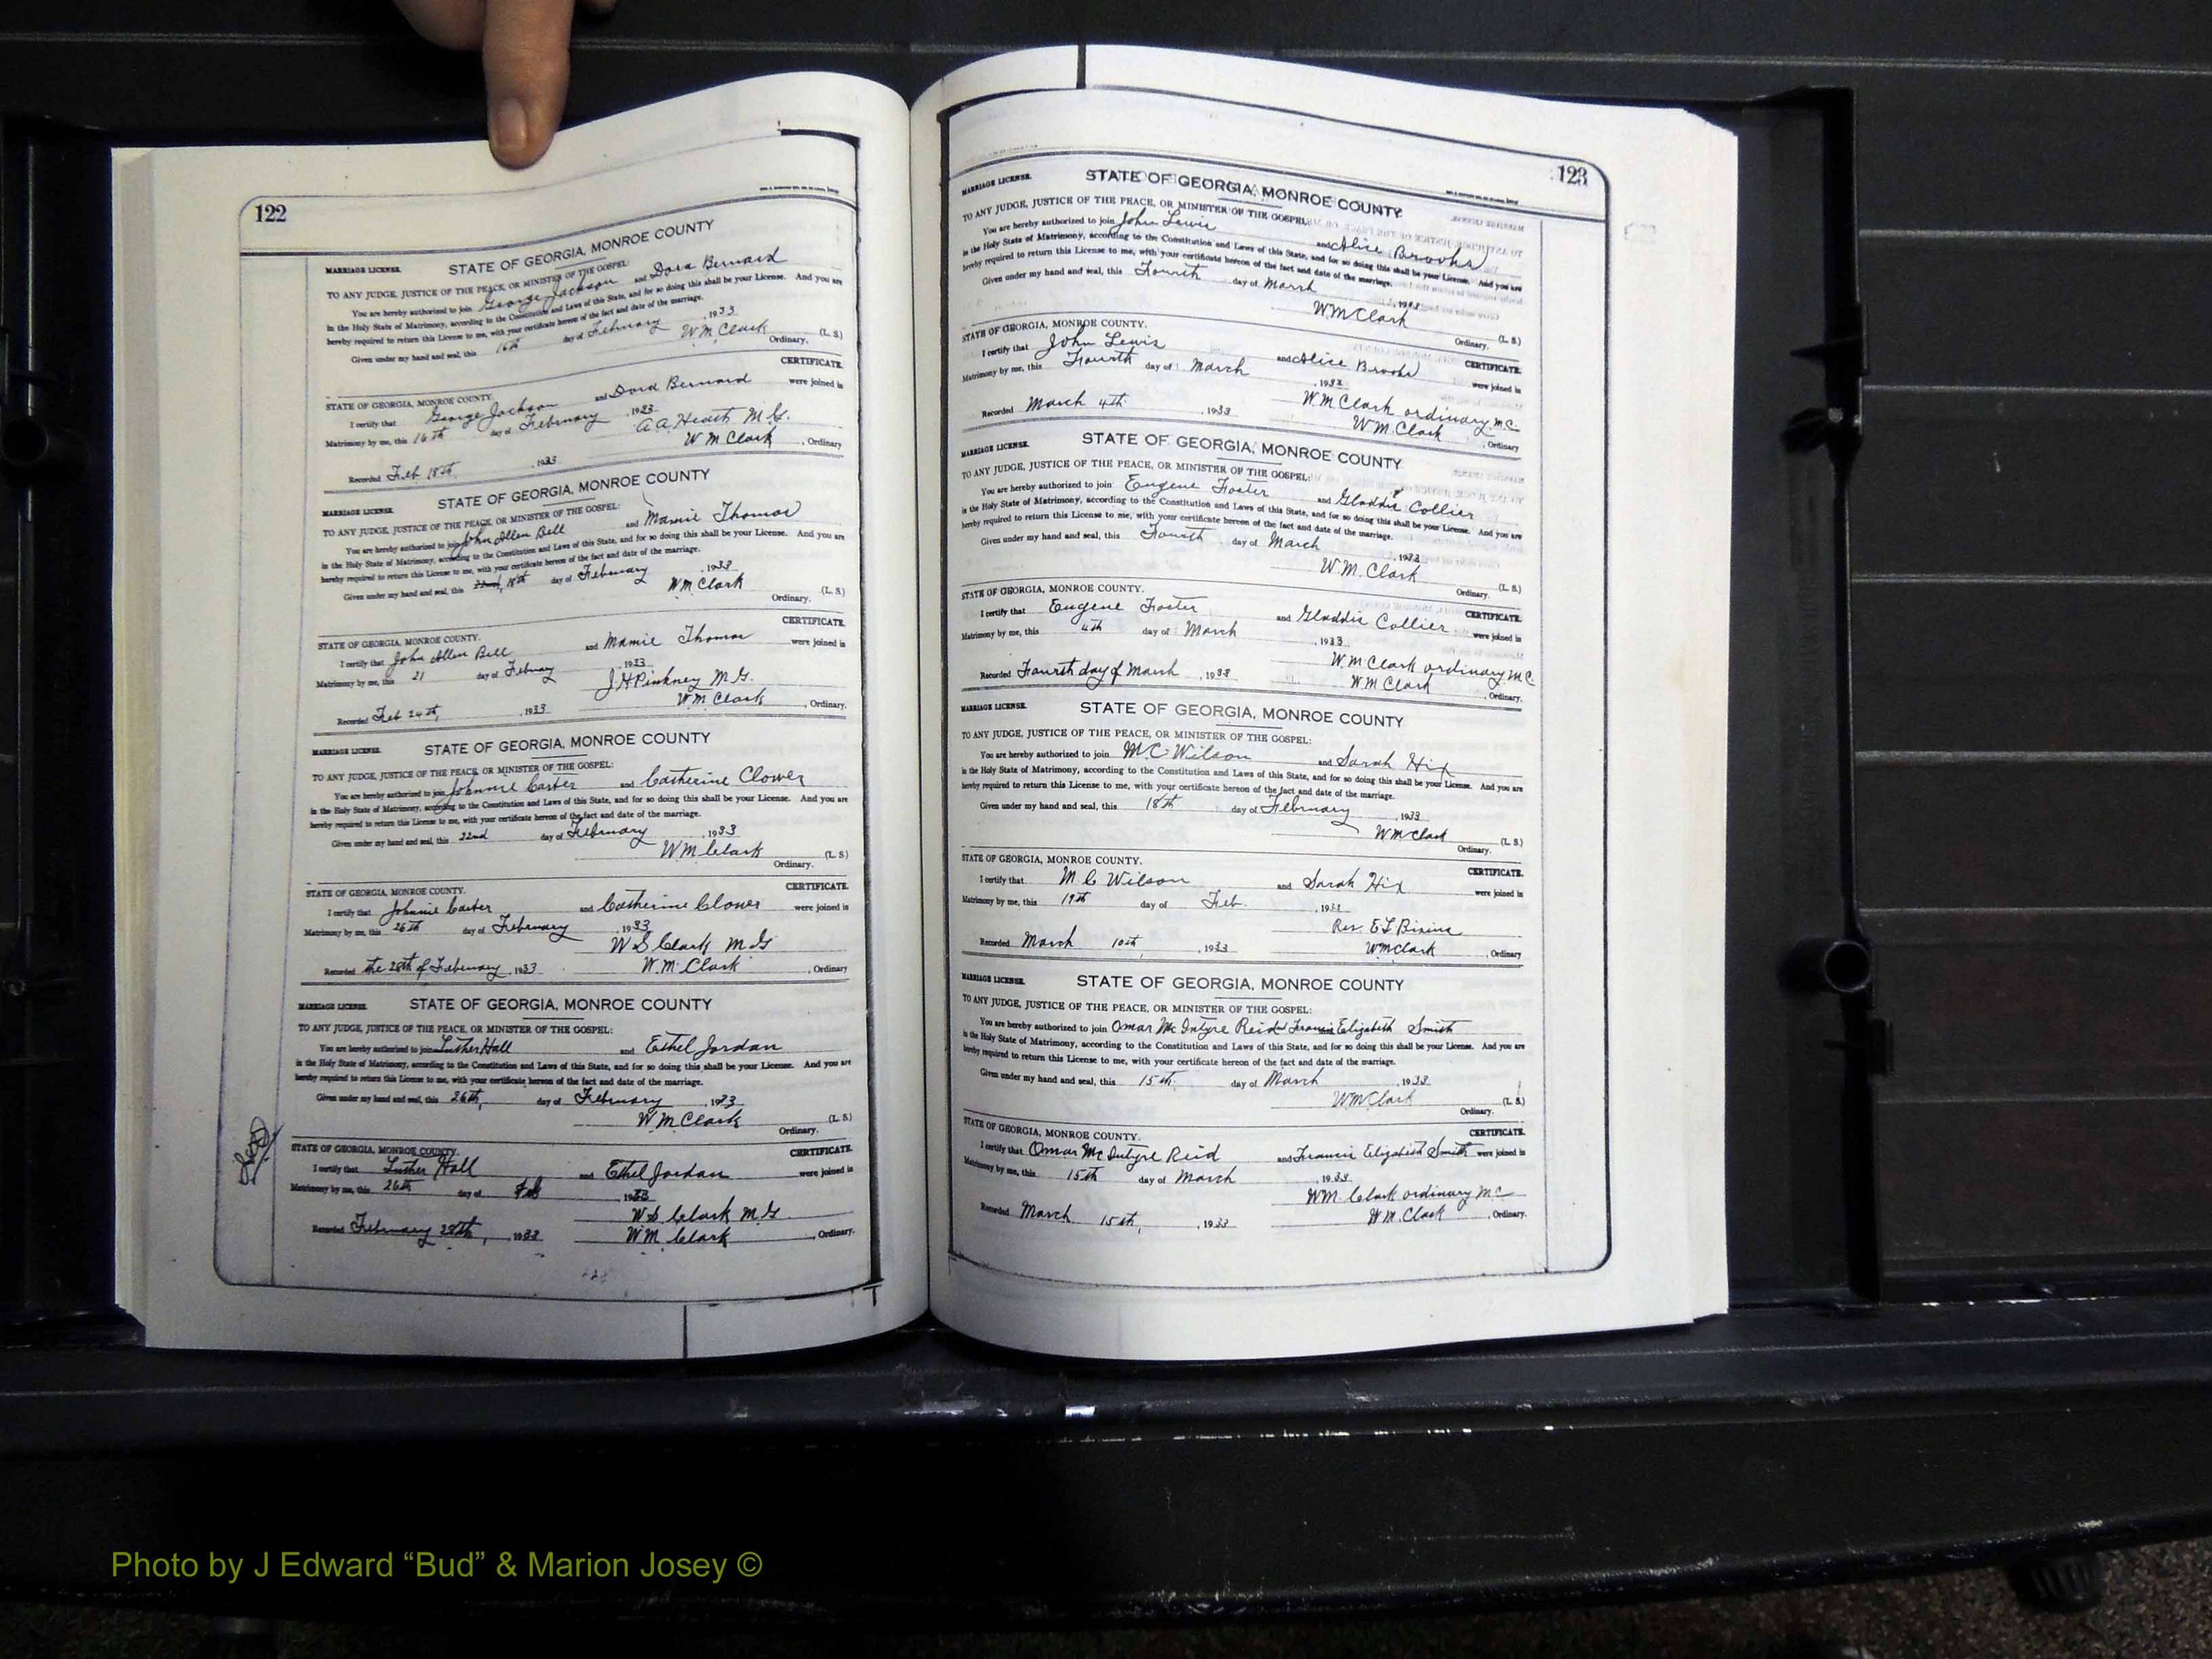 122
MARRIAGE LICENSE. STATE OF GEORGIA, MONROE COUNTY
TO ANY JUDGE, JUSTICE OF THE PEACE, OR MINISTER OF THE GOSPEL:
You are hereby authorized to join George Jackson and Dora Bernard
in the Holy State of Matrimony, according to the Constitution and Laws of this State, and for so doing this shall be your License. And you are
hereby required to return this License to me, with your certificate hereon of the fact and date of the marriage.
Given under my hand and seal, this 16th day of February, 1933
WM Clark (L. S.)
Ordinary.
CERTIFICATE.
STATE OF GEORGIA, MONROE COUNTY.
I certify that George Jackson and Dora Bernard were joined in
Matrimony by me, this 16th day of February, 1933
A.A. Heath M.G.
Recorded Feb 18th, 1933 WM Clark, Ordinary
MARRIAGE LICENSE. STATE OF GEORGIA, MONROE COUNTY
TO ANY JUDGE, JUSTICE OF THE PEACE, OR MINISTER OF THE GOSPEL:
You are hereby authorized to join John Allen Bell and Mamie Thomas
in the Holy State of Matrimony, according to the Constitution and Laws of this State, and for so doing this shall be your License. And you are
hereby required to return this License to me, with your certificate hereon of the fact and date of the marriage.
Given under my hand and seal, this 18th day of February, 1933
WM Clark (L. S.)
Ordinary.
CERTIFICATE.
STATE OF GEORGIA, MONROE COUNTY.
I certify that John Allen Bell and Mamie Thomas were joined in
Matrimony by me, this 21 day of Febuary, 1933
J H Pinkney M.G.
Recorded Feb 24th, 1933 WM Clark, Ordinary.
MARRIAGE LICENSE. STATE OF GEORGIA, MONROE COUNTY
TO ANY JUDGE, JUSTICE OF THE PEACE, OR MINISTER OF THE GOSPEL:
You are hereby authorized to join Johnnie Carter and Catherine Clower
in the Holy State of Matrimony, according to the Constitution and Laws of this State, and for so doing this shall be your License. And you are
hereby required to return this License to me, with your certificate hereon of the fact and date of the marriage.
Given under my hand and seal, this 22nd day of February, 1933
WM Clark (L. S.)
Ordinary.
CERTIFICATE.
STATE OF GEORGIA, MONROE COUNTY.
I certify that Johnnie Carter and Catherine Clower were joined in
Matrimony by me, this 26th day of February, 1933
W S Clark M G
Recorded the 28th of February, 1933 W.M. Clark, Ordinary
MARRIAGE LICENSE. STATE OF GEORGIA, MONROE COUNTY
TO ANY JUDGE, JUSTICE OF THE PEACE, OR MINISTER OF THE GOSPEL:
You are hereby authorized to join Luther Hall and Ethel Jordan
in the Holy State of Matrimony, according to the Constitution and Laws of this State, and for so doing this shall be your License. And you are
hereby required to return this License to me, with your certificate hereon of the fact and date of the marriage.
Given under my hand and seal, this 26th, day of February, 1933
WM Clark (L. S.)
Ordinary.
CERTIFICATE.
STATE OF GEORGIA, MONROE COUNTY.
I certify that Luther Hall and Ethel Jordan were joined in
Matrimony by me, this 26th day of Feb 1933
W.S. Clark M.G
Recorded February 28th, 1933 WM Clark, Ordinary.
123
MARRIAGE LICENSE. STATE OF GEORGIA, MONROE COUNTY
TO ANY JUDGE, JUSTICE OF THE PEACE, OR MINISTER OF THE GOSPEL:
You are hereby authorized to join John Lewis and Alice Brooks
in the Holy State of Matrimony, according to the Constitution and Laws of this State, and for so doing this shall be your License. And you are
hereby required to return this License to me, with your certificate hereon of the fact and date of the marriage.
Given under my hand and seal, this Fourth day of March
WM Clark
(L. S.)
Ordinary.
CERTIFICATE.
STATE OF GEORGIA, MONROE COUNTY.
I certify that John Lewis and Alice Brooks were joined in
Matrimony by me, this Fourth day of March
WM Clark ordinary M.C.
Recorded March 4th, 1933 WM. Clark, Ordinary
MARRIAGE LICENSE. STATE OF GEORGIA, MONROE COUNTY
TO ANY JUDGE, JUSTICE OF THE PEACE, OR MINISTER OF THE GOSPEL:
You are hereby authorized to join Eugene Foster and Gladdis Collier
in the Holy State of Matrimony, according to the Constitution and Laws of this State, and for so doing this shall be your License. And you are
hereby required to return this License to me, with your certificate hereon of the fact and date of the marriage.
Given under my hand and seal, this Fourth day of March
WM. Clark (L. S.)
Ordinary.
CERTIFICATE.
STATE OF GEORGIA, MONROE COUNTY.
I certify that Eugene Foster and Gladdis Collier were joined in
Matrimony by me, this 4th day of March, 1933
WM Clark ordinary M C
Recorded Fourth day of March, 1933 WM Clark, Ordinary.
MARRIAGE LICENSE. STATE OF GEORGIA, MONROE COUNTY
TO ANY JUDGE, JUSTICE OF THE PEACE, OR MINISTER OF THE GOSPEL:
You are hereby authorized to join M.C. Wilson and Sarah Hix
in the Holy State of Matrimony, according to the Constitution and Laws of this State, and for so doing this shall be your License. And you are
hereby required to return this License to me, with your certificate hereon of the fact and date of the marriage.
Given under my hand and seal, this 18th day of February, 1933
WM Clark (L. S.)
Ordinary.
CERTIFICATE.
STATE OF GEORGIA, MONROE COUNTY.
I certify that M C Wilson and Sarah Hix were joined in
Matrimony by me, this 19th day of Feb.
Rev. E L
Recorded March 10th, 1933 WM Clark, Ordinary
MARRIAGE LICENSE. STATE OF GEORGIA, MONROE COUNTY
TO ANY JUDGE, JUSTICE OF THE PEACE, OR MINISTER OF THE GOSPEL:
You are hereby authorized to join Omar McIntyre Reid and Francis Elizabeth Smith
in the Holy State of Matrimony, according to the Constitution and Laws of this State, and for so doing this shall be your License. And you are
hereby required to return this License to me, with your certificate hereon of the fact and date of the marriage.
Given under my hand and seal, this 15th. day of March, 1933
WM Clark (L. S.)
Ordinary.
CERTIFICATE.
STATE OF GEORGIA, MONROE COUNTY.
I certify that Omar McIntyre Reid and Francis Elizabeth Smith were joined in
Matrimony by me, this 15th day of March, 1933
WM. Clark ordinary M C
Recorded March 15th, 1933 WM. Clark, Ordinary.
Photo by J Edward “Bud” & Marion Josey ©